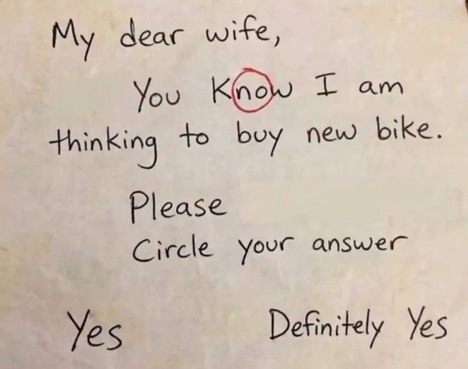 My dear wife,
You Know I am
thinking to buy new bike.
Please
Circle your answer
Yes Definitely Yes